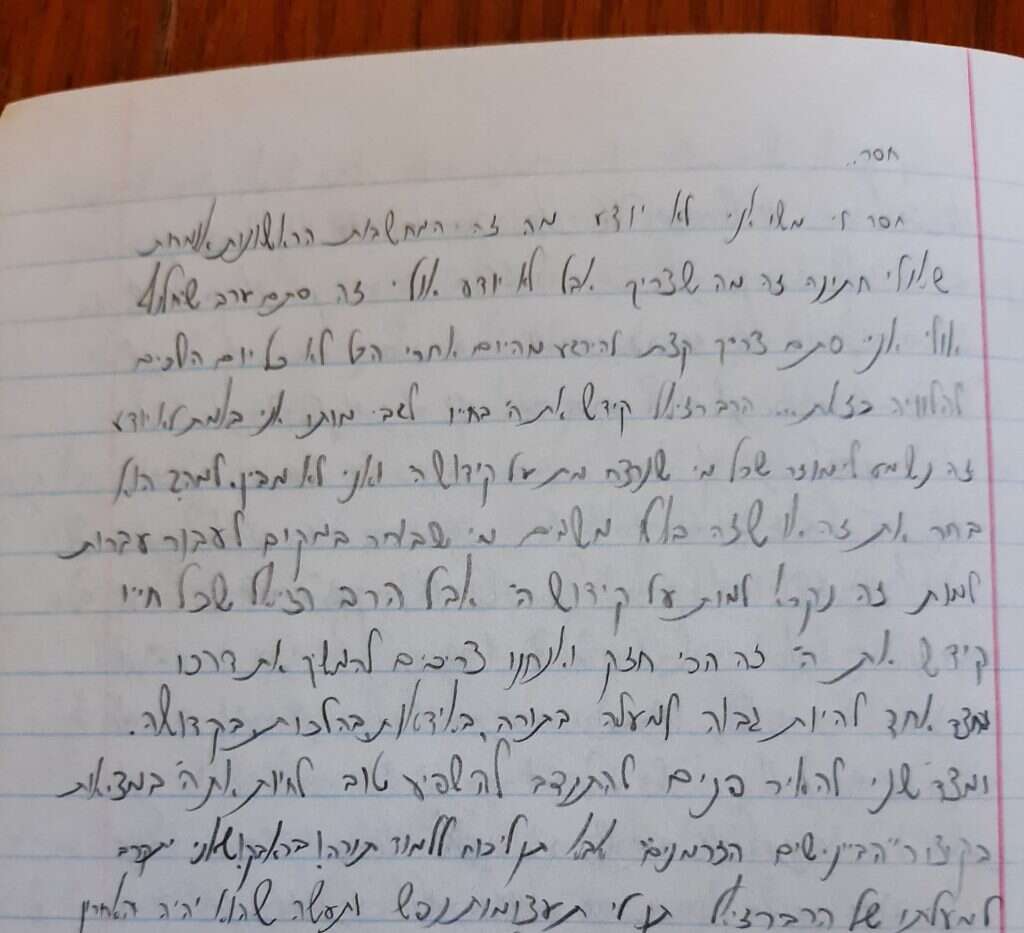 חסר..
חסר לי משהו אני לא יודע מה זה. המחשבות הראשונות אומרות
שאולי חתונה זה מה שצריך אבל לא יודע אולי זה סתם ערב
אולי אני סתם צריך קצת להירגע מהיום אחרי הכל לא כל יום הולכים
להלוויה כזאת... הרב רזיאל קידש את ה' בחייו לגבי מותו אני באמת לא יודע
זה נשמע לי מוזר שכל מי שנרצח מת על קידוש ה' ואני לא מבין. למה? הוא
בחר את זה או שזה בכלל משנים מי שבוחר במקום לעבור עברות
למות זה נקרא למות על קידוש ה' אבל הרב רזיאל שכל חייו
קידש את ה' זה הכי חזק ואנחנו צריכים להמשיך את דרכו
מצד אחד להיות גבוה למעלה בתורה, באידאות, בהלכות, בקדושה.
ומצד שני להאיר פנים להתנדב להשפיע טוב לחיות את ה' במציאות
בקצור "הביינישים הזרמנים" אבא תן לי כוח ללמוד תורה!
למעלתו של הרב רזיאל תן לי תעצומות נפש ותעשה שהוא יהיה האחרון